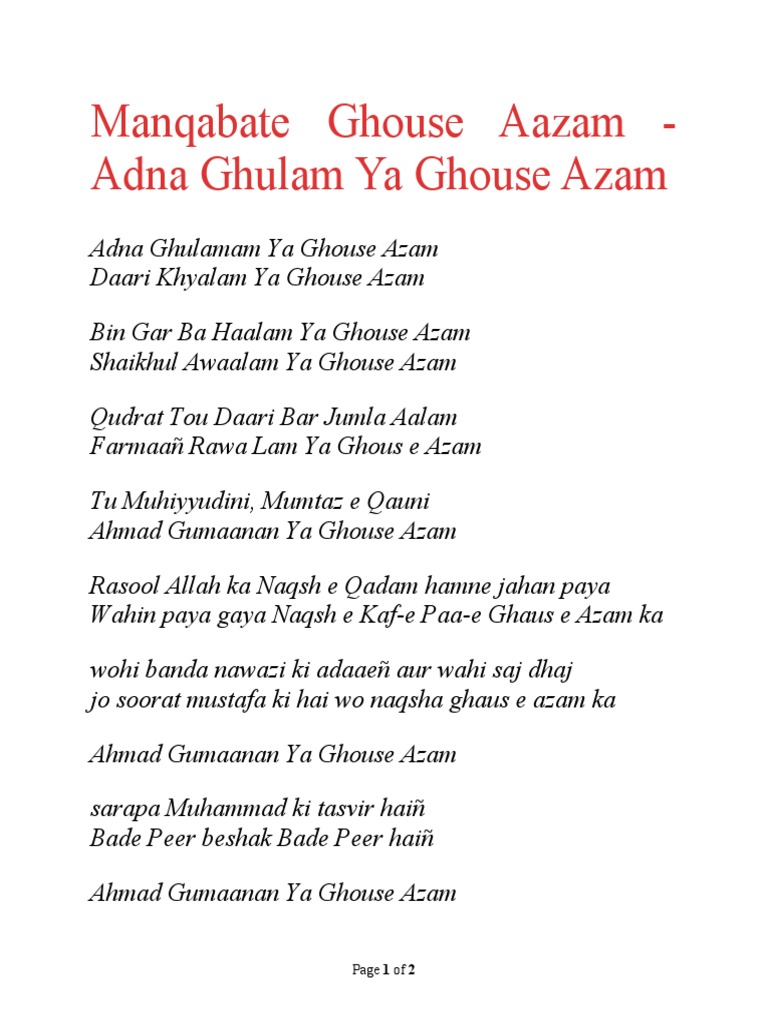 Manqabate Ghouse Aazam -
Adna Ghulam Ya Ghouse Azam
Adna Ghulamam Ya Ghouse Azam
Daari Khyalam Ya Ghouse Azam
Bin Gar Ba Haalam Ya Ghouse Azam
Shaikhul Awaalam Ya Ghouse Azam
Qudrat Tou Daari Bar Jumla Aalam
Farmaañ Rawa Lam Ya Ghous e Azam
Tu Muhiyyudini, Mumtaz e Qauni
Ahmad Gumaanan Ya Ghouse Azam
Rasool Allah ka Naqsh e Qadam hamne jahan paya
Wahin paya gaya Naqsh e Kaf-e Paa-e Ghaus e Azam ka
wohi banda nawazi ki adaaeñ aur wahi saj dhaj
jo soorat mustafa ki hai wo naqsha ghaus e azam ka
Ahmad Gumaanan Ya Ghouse Azam
sarapa Muhammad ki tasvir haiñ
Bade Peer beshak Bade Peer haiñ
Ahmad Gumaanan Ya Ghouse Azam
Page 1 of 2